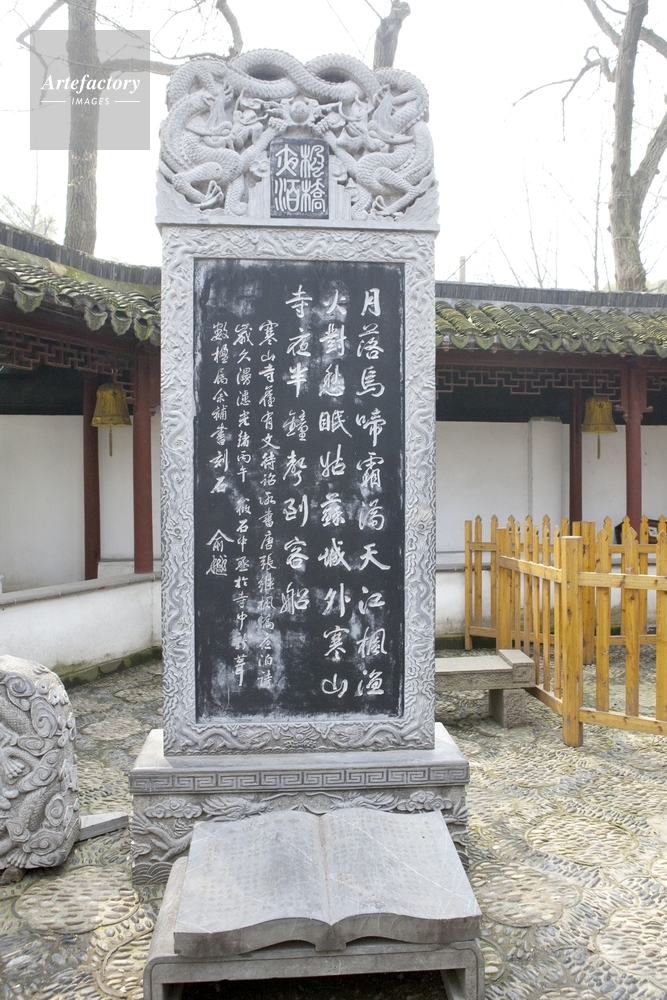 Artefactory
IMAGES
楓橋
夜泊
月落烏啼霜滿天江楓漁
火對愁眠姑蘇城外寒山
寺夜半鐘聲到客船
寒山寺舊有文待詔所書唐張繼楓橋夜泊詩
歲久漫漶光緒丙午筱石中丞於寺中新葺
數楹屬余補書刻石
俞樾